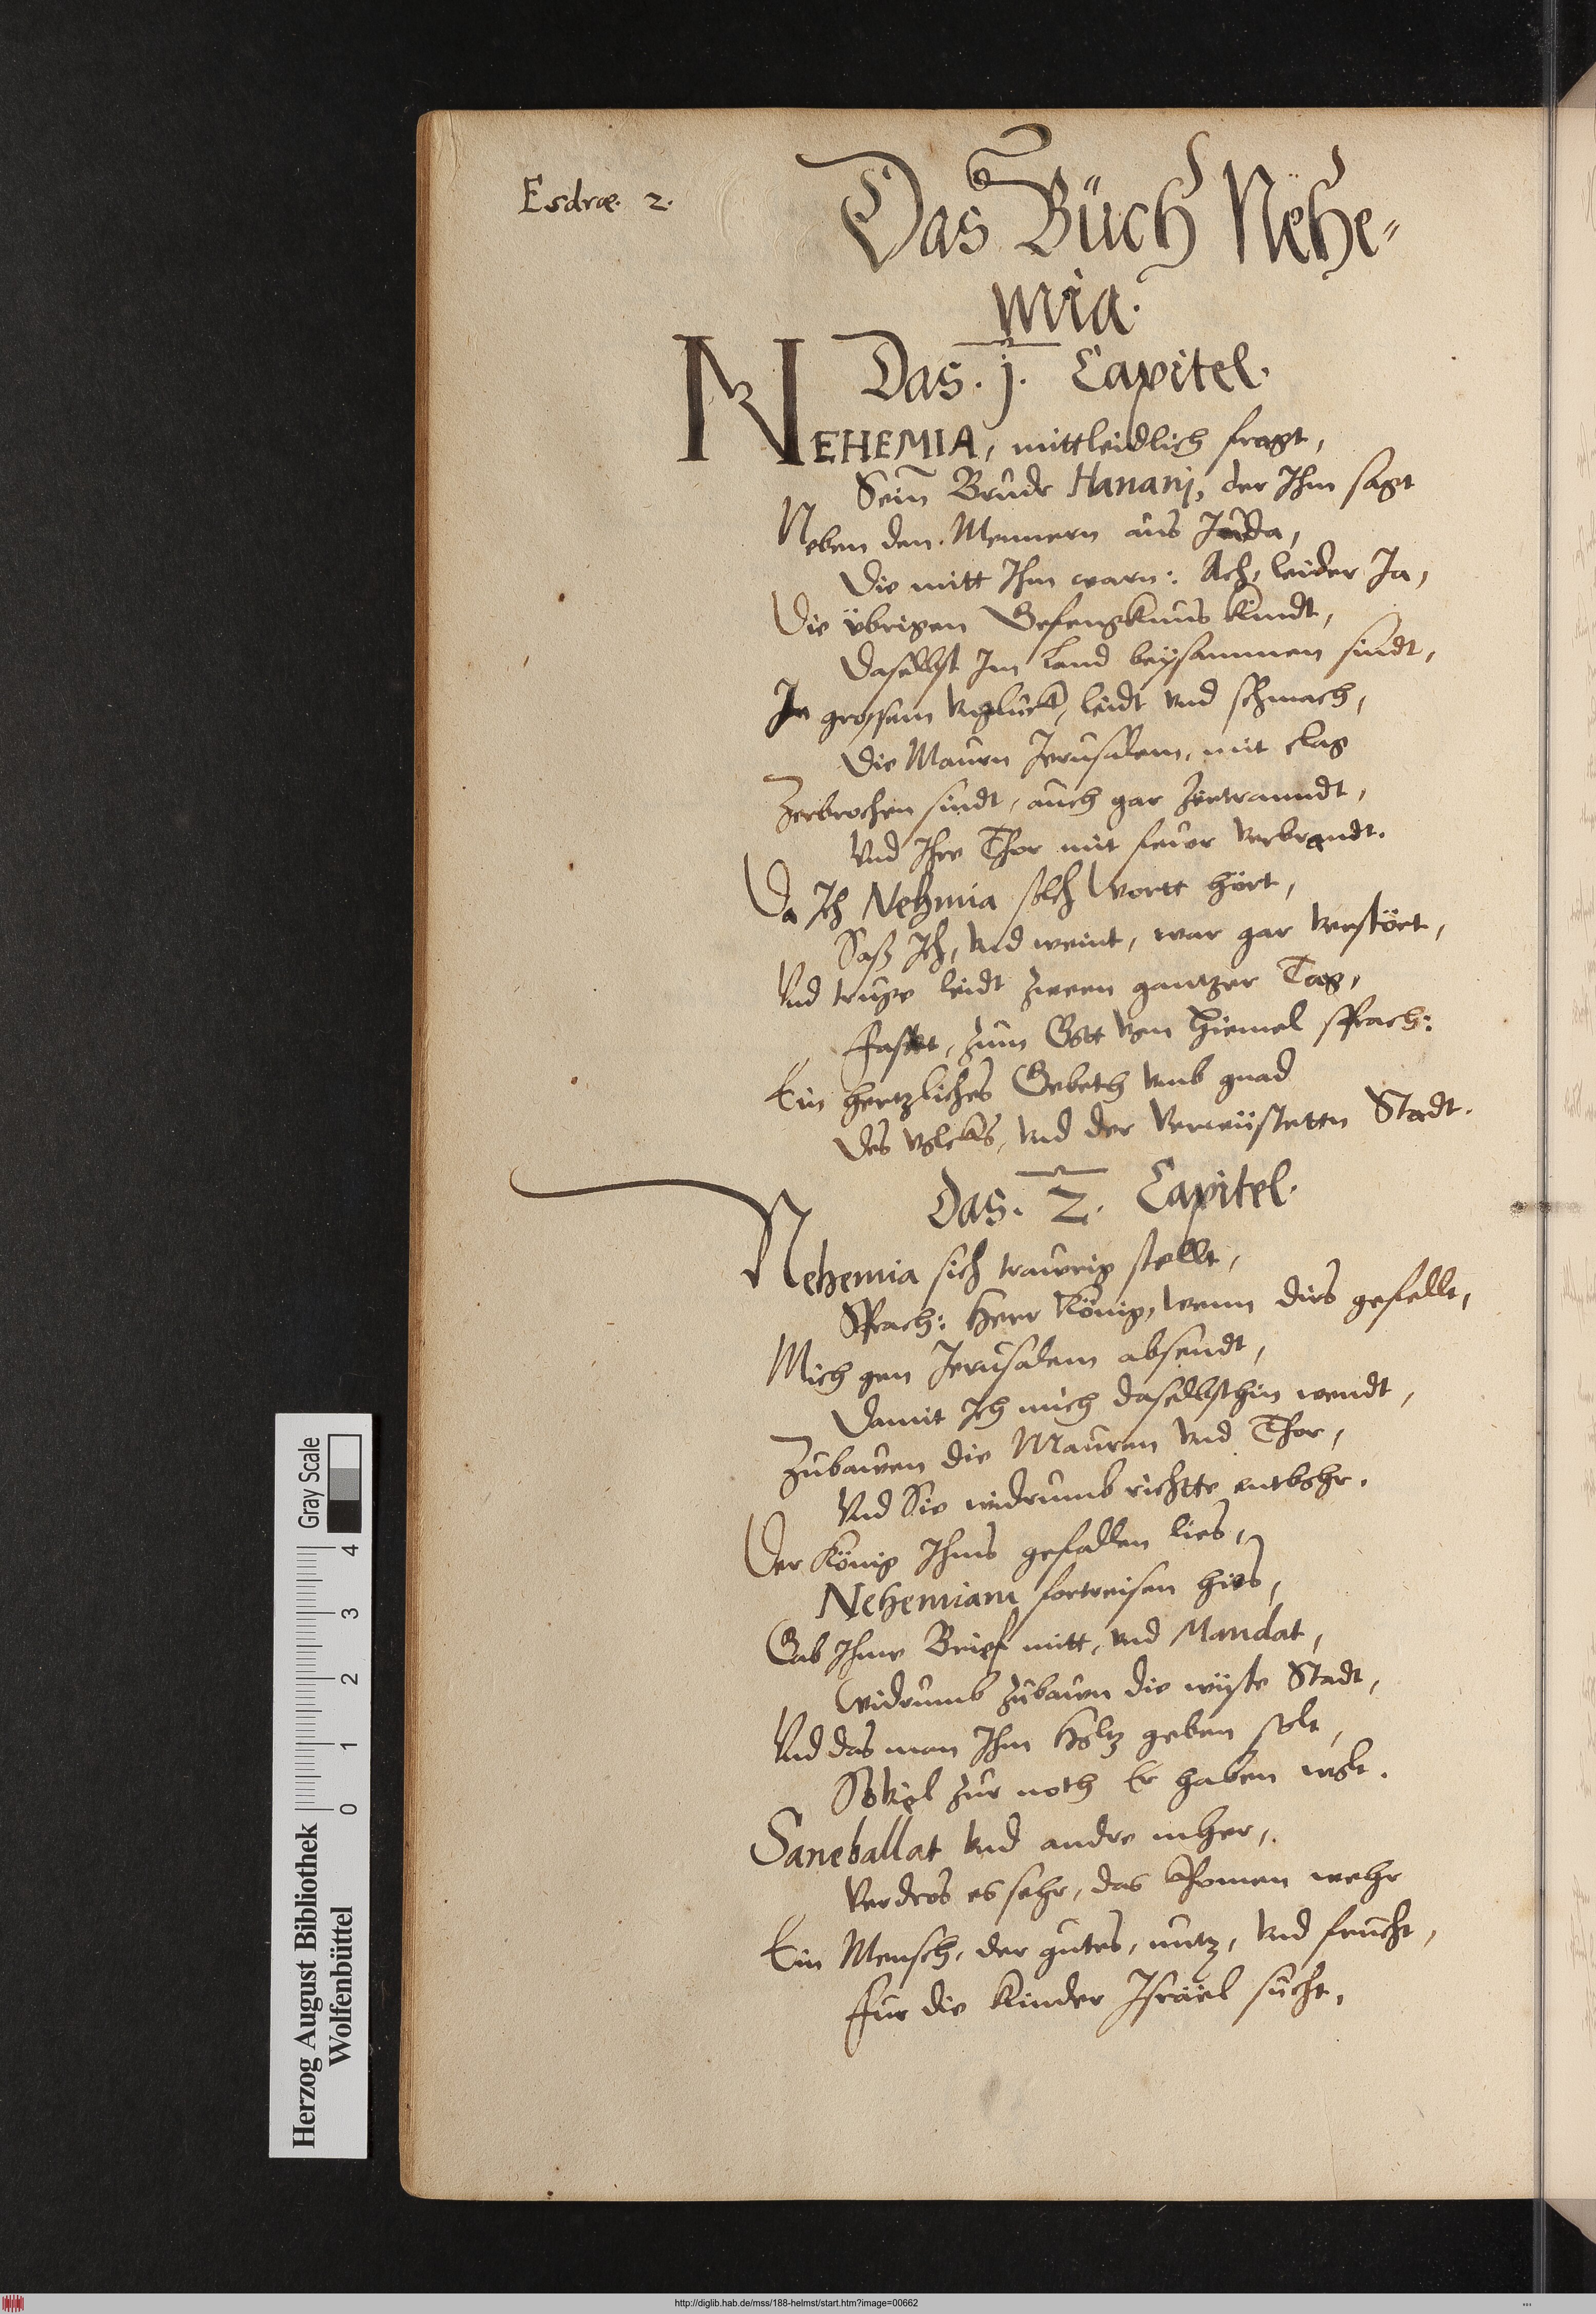 Esdræ. 2.
Das Büch Nehe-
mia.
Das. j. Capitel.
NEHEMIA, mittleidlich fragt,
Sein Brudr Hananj, der Ihm sagt
Neben den Mennern aus Juda,
Die mitt Ihm warn: Ach, leider Ja,
Die übrigen Gefengknus kindt,
Daselbst Im Land beÿsammen sindt,
In grossem vnglück, leidt vnd schmach,
Die Maurn Jerusalem, mit clag
Zerbrochen sindt, auch gar Zertranndt,
Vnd Ihre Thor mit feuer verbrandt.
Da Ich Nehmia solch Wortt hört,
Sass Ich, vnd weint, war gar verstört,
Vnd truge leidt zween gantzer Tag,
Fastet, zum Gott von Himel sprach:
Ein hertzliches Gebeth vmb gnad
Des volcks, vnd der Verwüstetten Stadt.
Das. 2. Capitel.
Nehemia sich traurig stellt,
Sprach: Herr König, wenn dirs gefellt,
Mich gen Jerusalem absendt,
Damit Ich mich daselbsthin wendt,
Zubawen die Mauren vnd Thor,
Vnd Sie widrumb richtte entbohr.
Der König Ihms gefallen lies,
Nehemiam fortreisen hies,
Gab Ihme Brief mitt, vnd Mandat,
Widrumb zubaun die wüste Stadt,
Vnd das man Ihm Holtz geben solt,
Soviel zur noth Er haben wolt.
Saneballat vnd andre mher,
Verdros es sehr, das khomen wehr
Ein Mensch, der gutes, nutz, vnd frucht,
Fur die Kinder Israël sucht,
Herzog August Bibliothek
Wolfenbüttel
0 1 2 3 4
Gray Scale
http://diglib.hab.de/mss/188-helmst/start.htm?image=00662